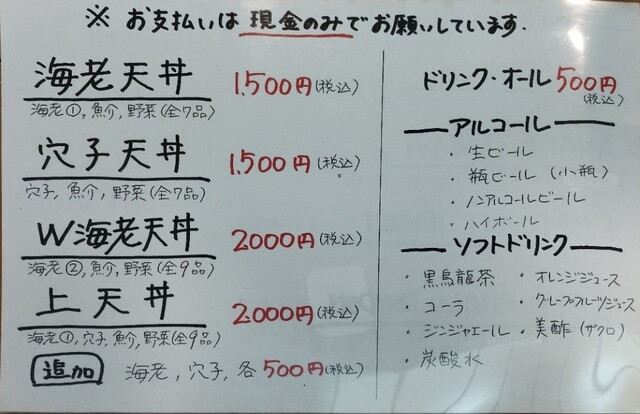 ※ お支払いは現金のみでお願いしています.
海老天丼 1.500円(税込)
海老①, 魚介, 野菜(全7品)
穴子天丼 1.500円(税込)
穴子, 魚介, 野菜(全7品)
W海老天丼 2000円(税込)
海老②, 魚介, 野菜(全9品)
上天丼 2.000円(税込)
海老①, 穴子, 魚介, 野菜(全9品)
追加 海老, 穴子, 各500円(税込)
ドリンク・オール 500円
(税込)
アルコール
・生ビール
・瓶ビール (小瓶)
・ノンアルコールビール
・ハイボール
ソフトドリンク
・黒烏龍茶 ・オレンジジュース
・コーラ ・グレープフルーツジュース
・ジンジャエール ・美酢(ザクロ)
・炭酸水